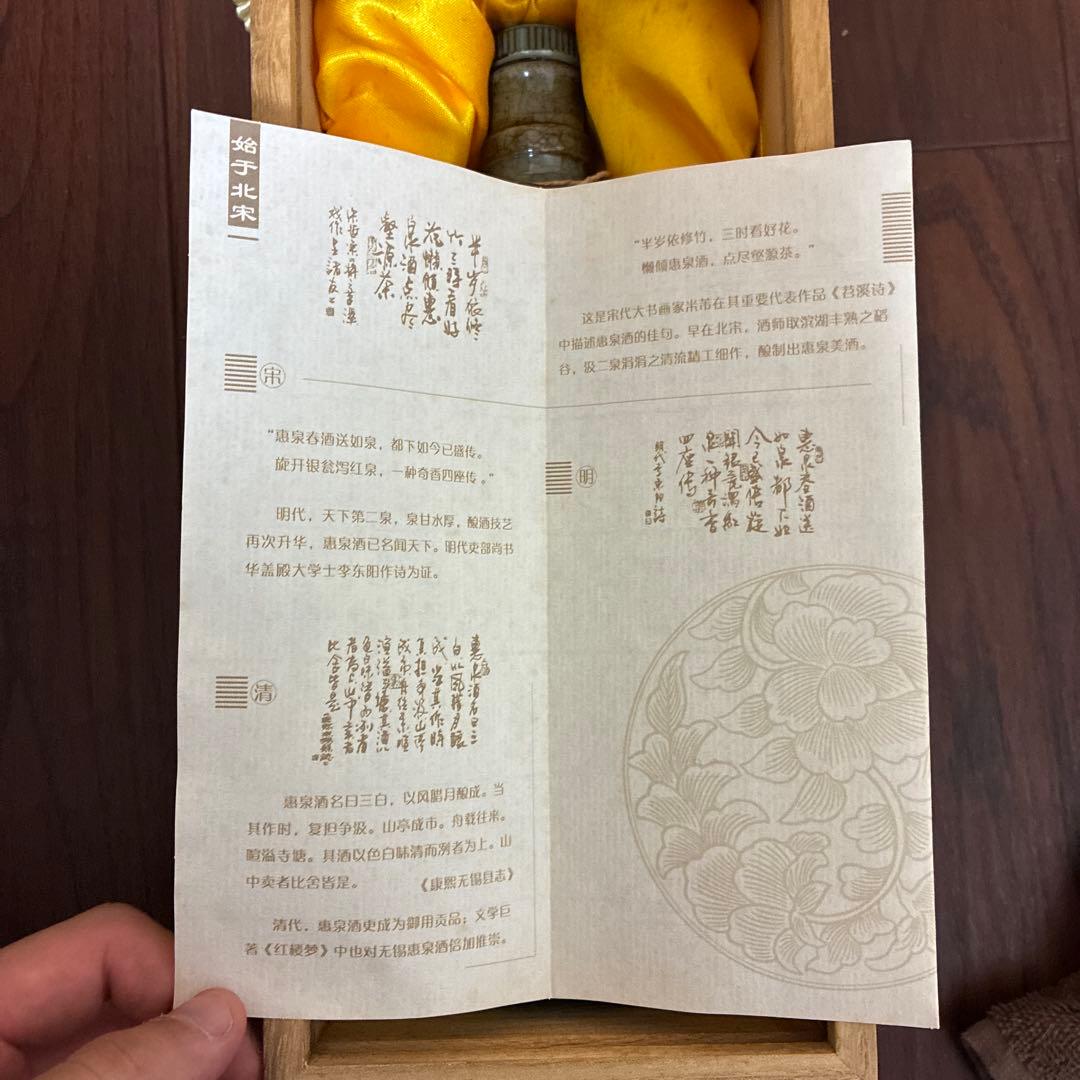 始于北宋
半岁依修
竹三时看好
花懒倾惠
泉酒点尽
壑源茶
宋
“半岁依修竹，三时看好花。
懒倾惠泉酒，点尽壑源茶。”
这是宋代大书画家米芾在其重要代表作品《苕溪诗》
中描述惠泉酒的佳句。早在北宋，酒师取滨湖丰熟之稻
谷，汲二泉涓涓之清流精工细作，酿制出惠泉美酒。
“惠泉春酒送如泉，都下如今已盛传。
旋开银瓮泻红泉，一种奇香四座传。”
明代，天下第二泉，泉甘水厚，酿酒技艺
再次升华，惠泉酒已名闻天下。明代吏部尚书
华盖殿大学士李东阳作诗为证。
明
惠泉春酒送
如泉都下如
今已盛传旋
开银瓮泻红
泉一种奇香
四座传
明代李东阳诗
清
惠泉酒名曰三
白以风腊月酿
成当其作时
复担争汲山亭
成市舟往来喧
惠泉酒名曰三白，以风腊月酿成。当
其作时，复担争汲。山亭成市。舟载往来。
喧溢寺塘。其酒以色白味清而冽者为上。山
中卖者比舍皆是。　《康熙无锡县志》
清代，惠泉酒更成为御用贡品；文学巨
著《红楼梦》中也对无锡惠泉酒倍加推崇。